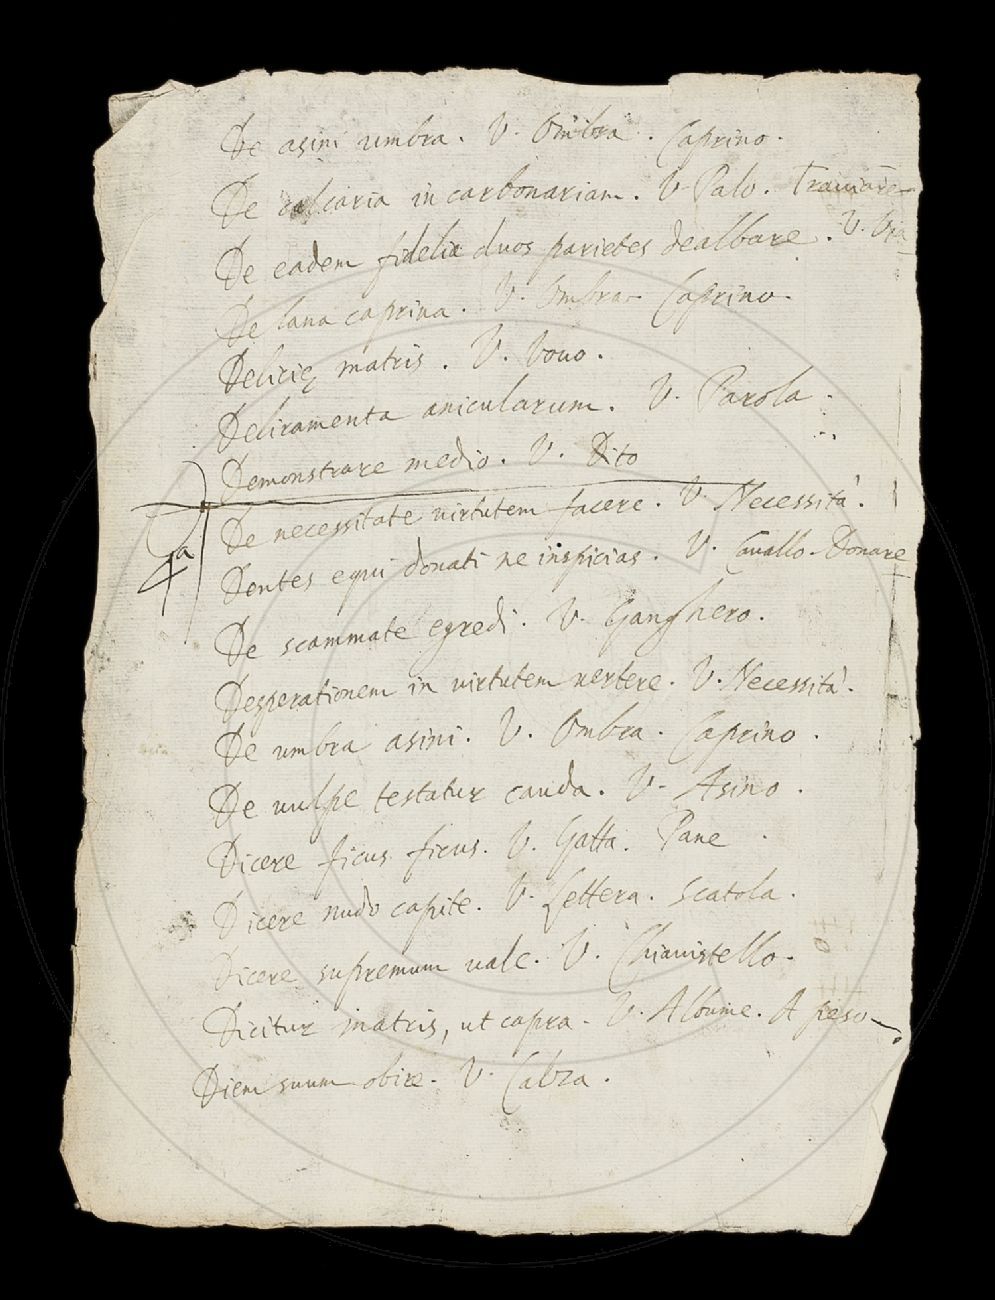 De asini umbra. V. Ombra. Caprino.
De calcaria in carbonariam. V. Palo. Traviare
De eadem fidelia duos parietes dealbare. V. Via
De lana caprina. V. Ombra Caprino.
Delicię matris. V. Vovo.
Deliramenta anicularum. V. Parola.
Demonstrare medio. V. Dito
De necessitate virtutem facere. V. Necessità.
Dentes equi donati ne inspicias. V. Cavallo. Donare
4a
De scammate egredi. V. Ganghero.
Desperationem in virtutem vertere. V. Necessità.
De umbra asini. V. Ombra. Caprino.
De vulpe testatur cauda. V. Asino.
Dicere ficus ficus. V. Gatta. Pane
Dicere nudo capite. V. Lettera. Scatola.
Dicere supremum vale. V. Chiavistello.
Dicitur matris, ut capra. V. A peso
Diem suum obire. V.